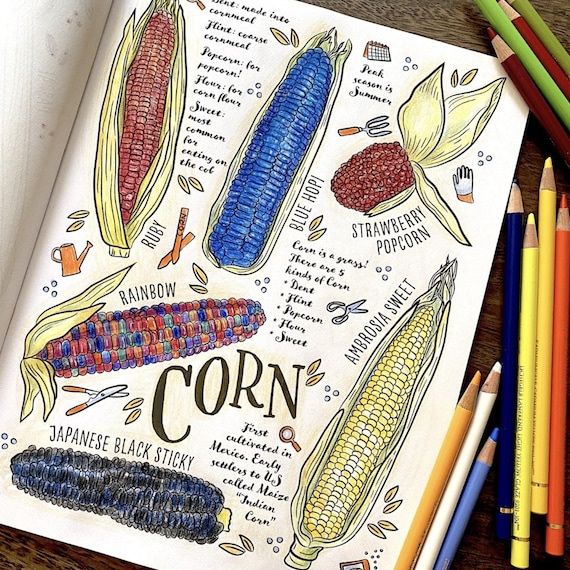 Dent: made into
cornmeal
Flint: coarse
cornmeal
Popcorn: for
popcorn!
Flour: for
corn flour
Sweet:
most
common
for
eating on
the cob
Peak
season is
Summer
RUBY
BLUE HOPI
STRAWBERRY
POPCORN
Corn is a grass!
There are 5
kinds of Corn
• Dent
• Flint
• Popcorn
• Flour
• Sweet
RAINBOW
AMBROSIA SWEET
CORN
JAPANESE BLACK STICKY
First
cultivated in
Mexico. Early
settlers to US
called Maize
"Indian
Corn"